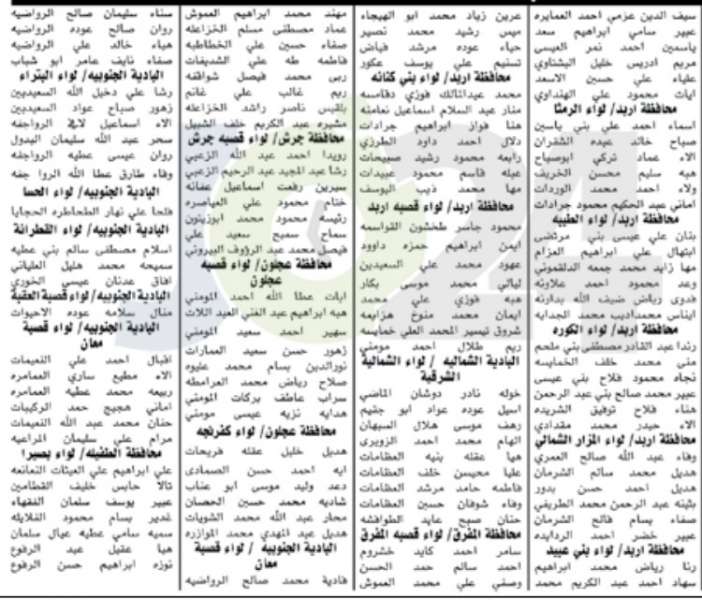 سيف الدين عزمي احمد العمايره
عبير سامي ابراهيم سعد
ياسمين احمد نمر العيسى
مريم ادريس خليل البشتاوي
علياء علي حسين الاسعد
ايات محمود علي الهنداوي
محافظة اربد/ لواء الرمثا
اسماء احمد علي بني ياسين
صباح خالد عبده الشقران
الاء عماد تركي ابوصباح
هبه سليم محسن الخريف
ولاء احمد محمد الوردات
اماني عبد الحكيم محمود جرادات
محافظة اربد/ لواء الطيبه
بنان علي عيسى بني مرتضى
ابتهال علي ابراهيم العزام
مها زايد محمد جمعه الدلقموني
وعد محمود احمد علاونه
فدوى رياض ضيف الله بدارنه
ايناس محمداديب محمد الجدايه
محافظة اربد/ لواء الكوره
رندا عبد القادر مصطفى بني ملحم
منى محمد خلف الخمايسه
نجاه محمود فلاح بني عيسى
عبير محمد صالح بني عبد الرحمن
هناء فلاح توفيق الشريده
الاء حيدر محمد مقدادي
محافظة اربد/ لواء المزار الشمالي
وفاء عبد الله صالح العمري
هديل محمد سالم الشرمان
هديل احمد حسن بدور
بثينه عبد الرحمن محمد الطريفي
صفاء بسام فالح الشرمان
عبير خضر احمد الردايده
محافظة اربد/ لواء بني عبيد
رنا رياض محمد ابراهيم
سهاد احمد عبد الكريم محمد
عرين زياد محمد ابو الهيجاء
ميس رشيد محمد نصير
حياء عوده مرشد فياض
تسنيم علي يوسف عكور
محافظة اربد/ لواء بني كنانه
محمد عبدالمالك فوزي دقامسه
منار عبد السلام اسماعيل نعامنه
هنا فواز ابراهيم جرادات
دلال احمد داود الطرزي
رابعه محمود رشيد صبيحات
عبله قاسم محمود عبيدات
مها محمد ذيب اليوسف
محافظة اربد/ لواء قصبه اربد
محمود جاسر طخشون القواسمه
ايمن ابراهيم حمزه داوود
عهود محمد علي السعيدين
ليالي محمد موسى بكار
هبه فوزي علي محمد
ايمان محمد منوخ هزايمه
شروق تيسير المحمد العلي خمايسه
ريم طلال احمد مومني
البادية الشماليه / لواء الشمالية
الشرقية
خوله نادر دوشان الماضي
اسيل عوده عواد ابو جثيم
رهف موسى هلال السبهان
الهام محمد احمد الزويري
هيا عقله بنيه العظامات
عليا محيسن خلف العظامات
فاطمه حامد مرشد العظامات
وفاء شوفان حسين العظامات
حنان صبح عايد الطوافشه
محافظة المفرق/ لواء قصبه المفرق
سامر احمد كايد خشروم
احمد سالم حمد الحسن
وصفي علي محمد العموش
مهند محمد ابراهيم العموش
عماد مصطفى مسلم الخزاعله
صفاء حسين علي الخطاطبه
فاطمه طه علي الشديفات
ربى محمد فيصل شواقفه
ريم غالب علي غانم
بلقيس ناصر راشد الخزاعله
مشيره عبد الكريم خلف الشبيل
محافظة جرش/ لواء قصبه جرش
رويدا احمد عبد الله الزعبي
رشا عبد المجيد عبد الرحيم الزعبي
سيرين رفعت اسماعيل عمانه
ختام محمود علي العياصره
رئيسه محمود محمد ابوزيتون
سماح سميح سعيد علي
فيصل محمد عبد الرؤوف البيروني
محافظة عجلون/ لواء قصبه
عجلون
ايات عطا الله احمد المومني
هبه ابراهيم عبد الغني العبد اللات
سهير احمد سعيد المومني
زهور حسن سعيد العمارات
نورالدين بسام محمد عليوه
صلاح رياض محمد المرامطه
سراب عاطف بركات المومني
هدايه نزيه عيسى مومني
محافظة عجلون/ لواء كفرنجه
هديل خليل عقله فريحات
ايه احمد حسن الصمادي
دعد وليد موسى ابو عناب
شاديه محمد حسين الحصان
محار عبد الله محمد الشويات
هديل عبد المهدي محمد الموازره
البادية الجنوبيه / لواء قصبة
معان
فادية محمد صالح الرواضيه
سناء سليمان صالح الرواضيه
روان صالح عوده الرواضيه
هياء خالد علي الرواضيه
صفاء نايف عامر ابو شباب
البادية الجنوبيه/ لواء البتراء
رشا علي دخيل الله السعيديين
زهور صباح عواد السعيديين
الاء اسماعيل لافي الرواجفه
سحر عبد الله سليمان البدول
روان عيسى عطيه الرواجفه
وفاء طارق عطا الله الروا جفه
البادية الجنوبيه/ لواء الحسا
فلحا علي نهار الطحاطره الحجايا
البادية الجنوبيه/ لواء القطرانة
اسلام مصطفى سالم بني عطيه
سميحه محمد هليل العلياني
افاق عدنان عيسى الخوري
البادية الجنوبيه/ لواء قصبة العقبة
منال سلامه عوده الاحيوات
البادية الجنوبيه/ لواء قصبة
معان
اقبال احمد علي النعيمات
الاء مطيع ساري العمامره
ربيعه محمد عطيه العمامره
اماني هجيج حمد الركيبات
حنان محمد عبد الله النعيمات
مرام علي سليمان المراعيه
محافظة الطفيله/ لواء بصيرا
علي ابراهيم علي العيثات النعانعه
تالا حابس خليف القطامين
عبير يوسف سلمان الفقهاء
غدير بسام محمود القلايله
سميه سامي عطيه عيال سلمان
هيا عقيل عبد الرفوع
نوزه ابراهيم حسن الرفوع